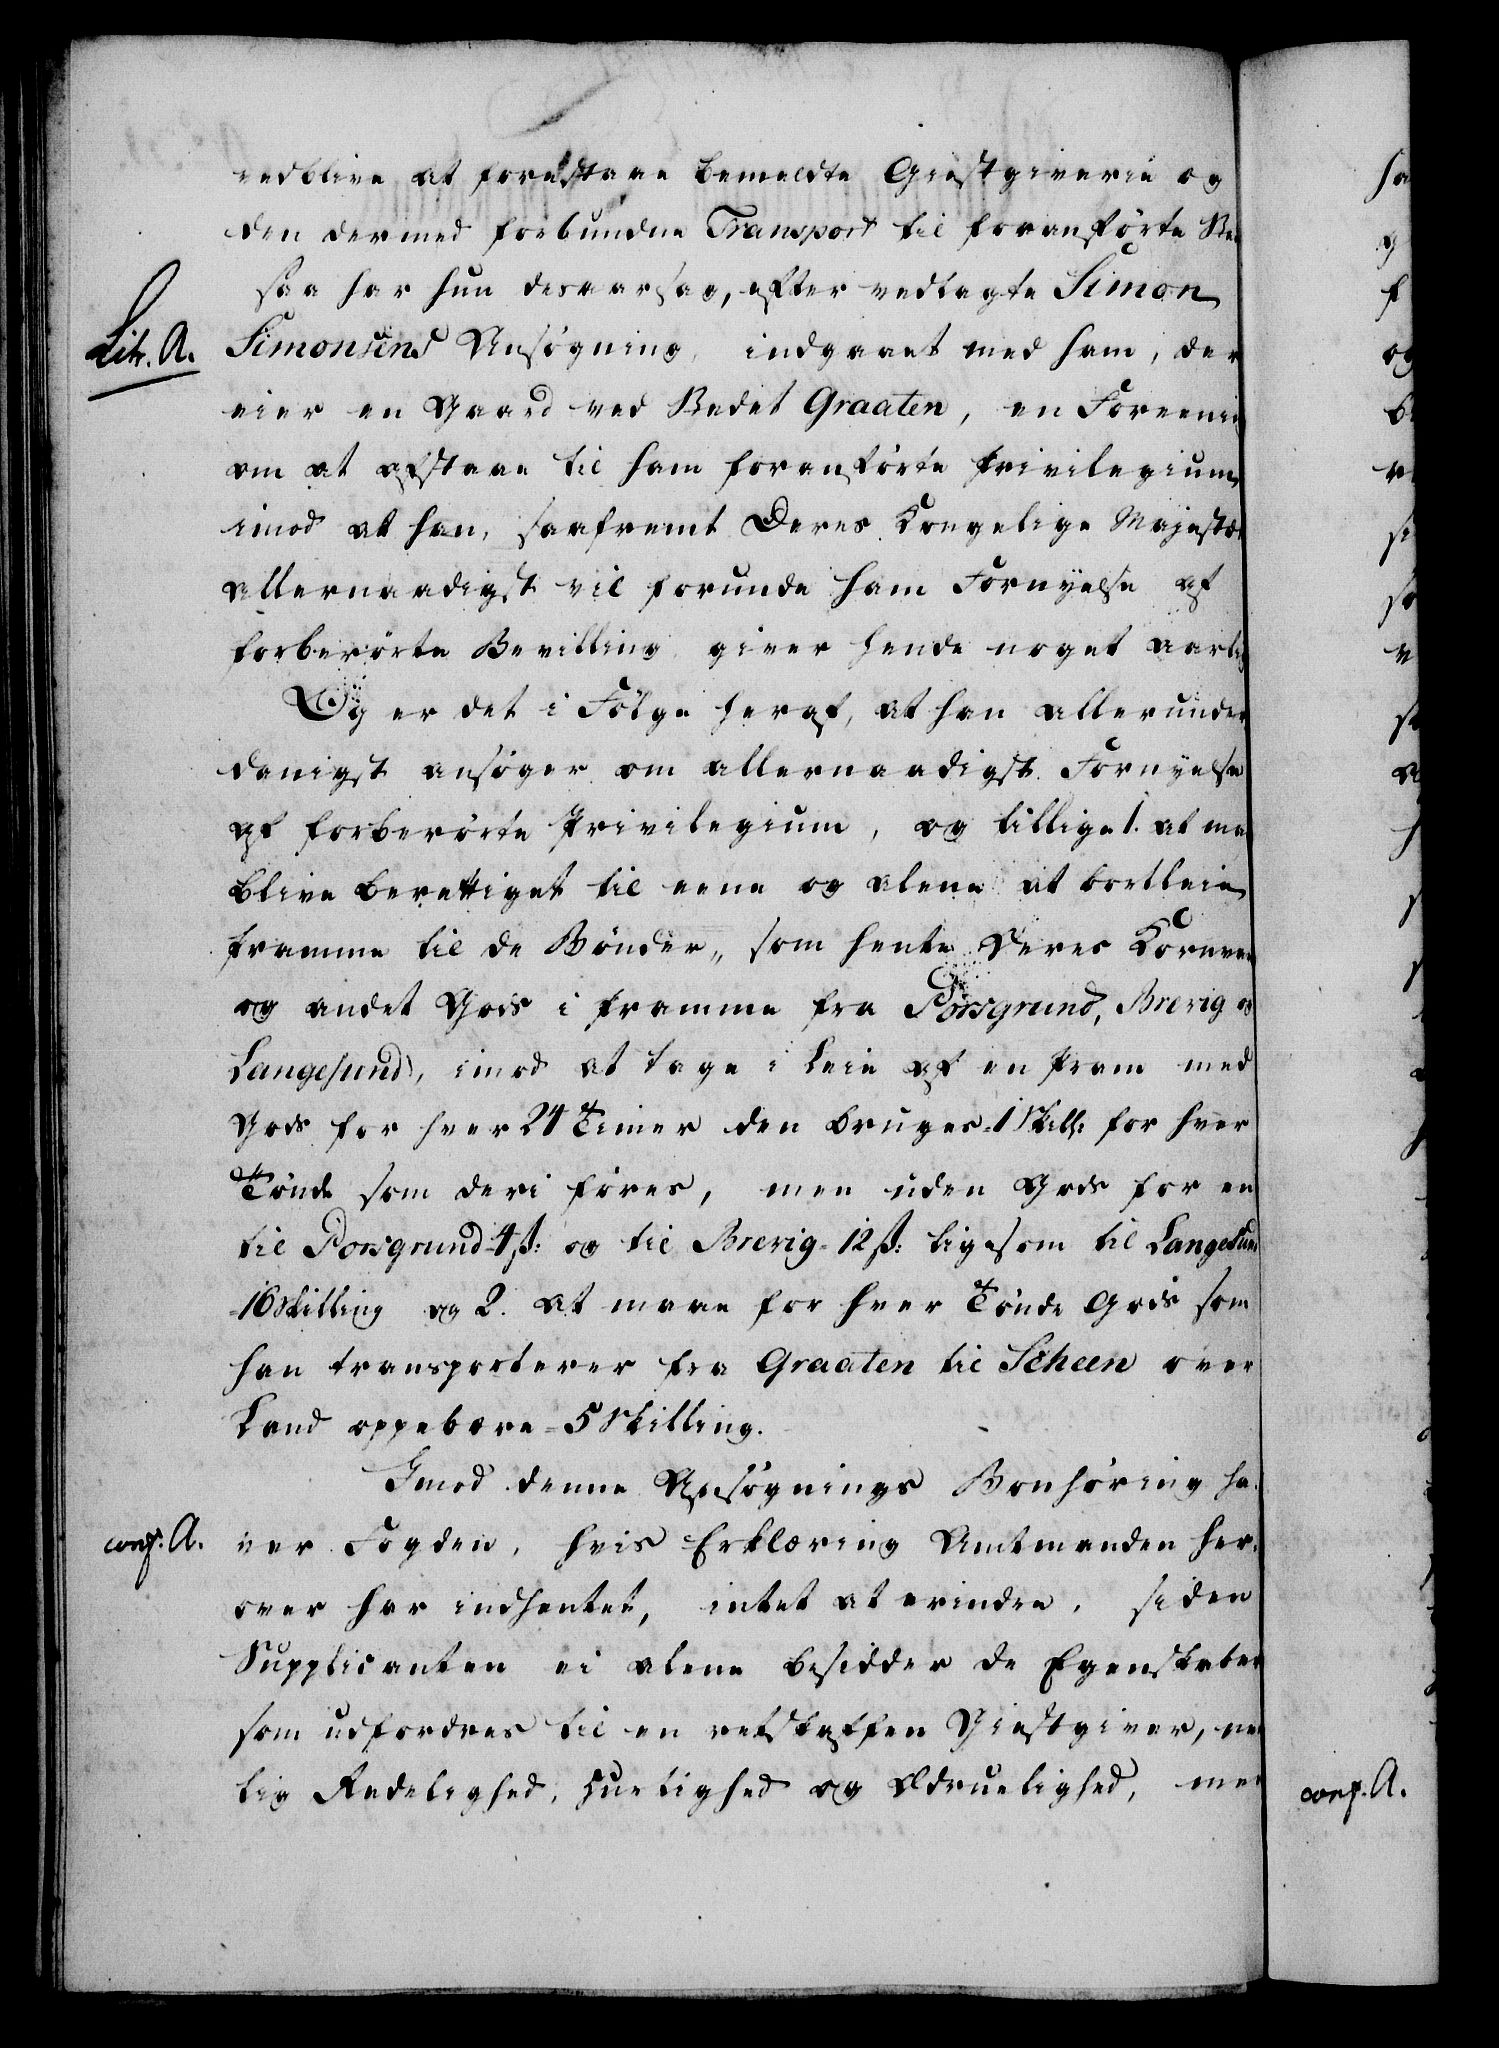 vedblive at forestaae bemeldte Giestgiverie og
den dermed forbundne Transport til foranførte
saa har hun desaarsag, efter vedlagte Simon
Litr. A. Simonsens Ansøgning, indgaaet med ham, der
eier en Gaard ved Stedet Graaten, en Foreenin
om at afstaae til ham foranførte Privilegium
imod at han, saafremt Deres Kongelige Majestæt
allernaadigst vil forunde ham Fornyelse af
forberørte Bevilling, giver hende noget aarlig
Og er det i Følge heraf, at han allerunder
danigst ansøger om allernaadigst Fornyelse
af forberørte Privilegium, og tillige 1. at maa
blive berettiget til eene og alene at bortleie
Pramme til de Bønder, som hente Deres Kornvar
og andet Gods i Pramme fra Porsgrund, Brevig og
Langesund, imod at tage i Leie af en Pram med
Gods for hver 24 Timer den bruges - 1 Skill: for hver
Tønde som deri føres, men uden Gods for en
til Porsgrund - 4 ß: og til Brevig - 12 ß: ligesom til Langesund
- 16 Skilling og 2. at maae for hver Tønde Gods som
han transporterer fra Graaten til Scheen over
Land oppebære - 5 Skilling.
Imod denne Ansøgnings Bønhøring ha-
conf. A. ver Fogden, hvis Erklæring Amtmanden her-
over har indhentet, intet at erindre, siden
Supplicanten ei alene besidder de Egenskaber
som udfordres til en retskaffen Giestgiver, nem
lig Redelighed, Hurtighed og Ædruelighed, men
conf. A.